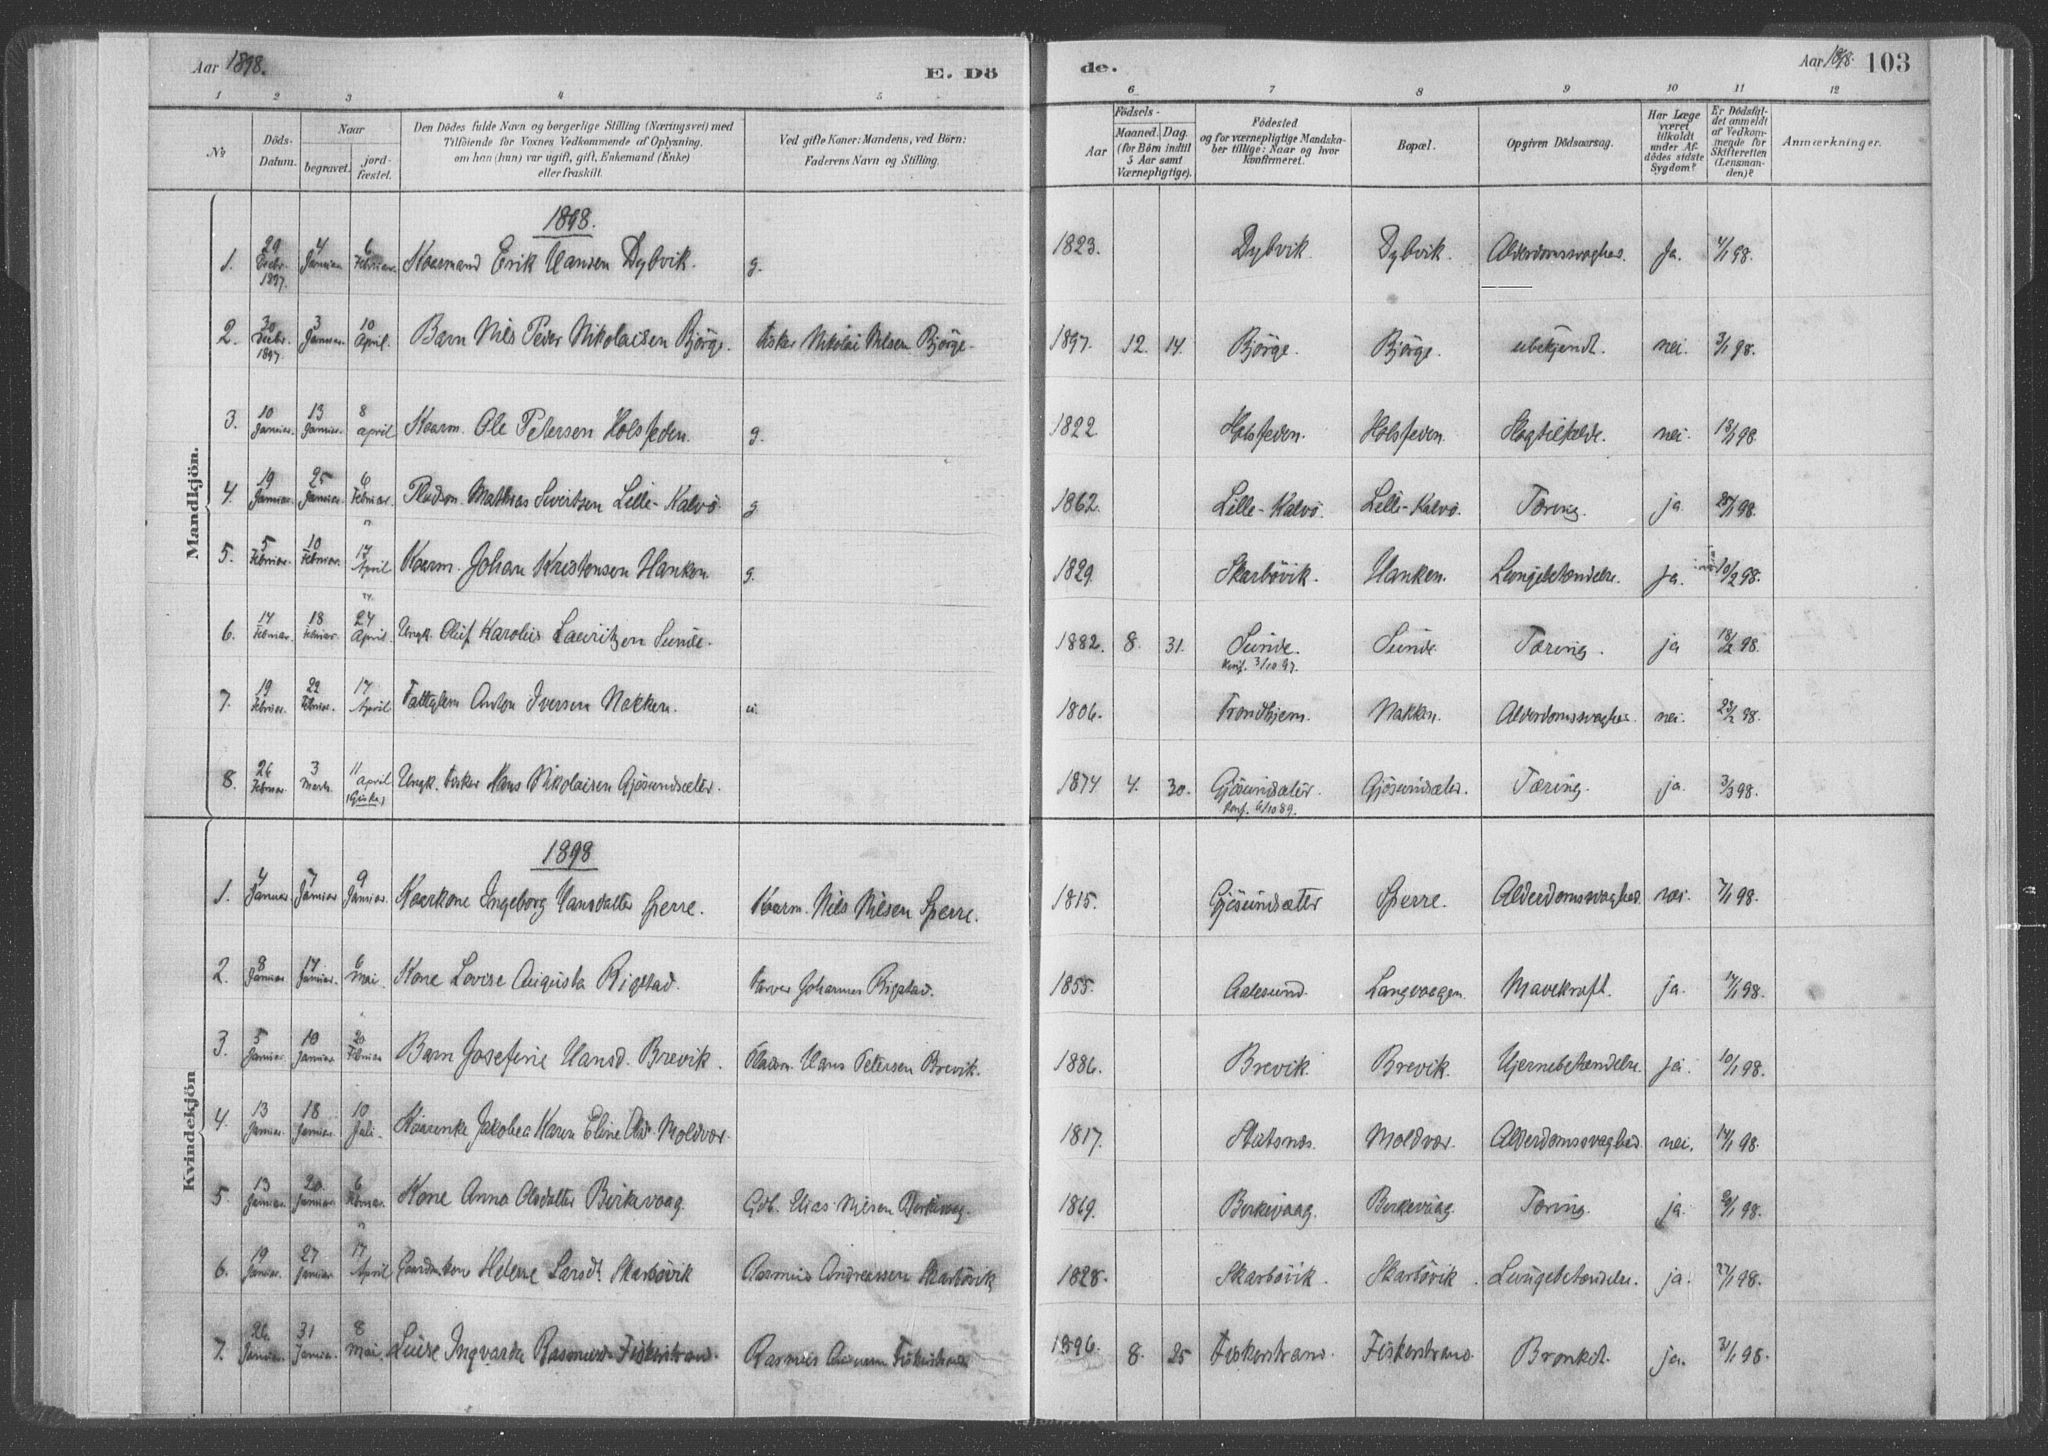 Aar 1898.
E. Dö
de.
Aar 1898.
103
1 2 3 4 5 6 7 8 9 10 11 12
No
Döds-Datum.
Naar
begravet.
jord-fæstet.
Den Dödes fulde Navn og borgerlige Stilling (Næringsvei) med
Tilföiende for Voxnes Vedkommende af Oplysning,
om han (hun) var ugift, gift, Enkemand (Enke)
eller fraskilt.
Ved gifte Koner: Mandens, ved Börn:
Faderens Navn og Stilling.
Födsels-
Aar
Maaned. Dag.
(for Börn indtil
5 Aar samt
Værnepligtige).
Födested
og for værnepligtige Mandska-
ber tillige: Naar og hvor
Konfirmeret.
Bopæl.
Opgiven Dödsaarsag.
Har Læge
været
tilkaldt
under Af-
dödes sidste
Sygdom?
Er Dödsfal-
det anmeldt
af Vedkom-
mende for
Skifteretten
(Lensman-
den)?
Anmærkninger.
Mandkjön.
1898.
1. 29 Decbr. 1897. 4 Januar 6 Februar. Kaarmand Erik Hansen Dybvik. g. 1823. Dybvik. Dybvik. Alderdomssvaghed. Ja. 4/1 98.
2. 30 Decbr. 1897 3 Januar. 10 April. Barn Nils Peder Nikolaisen Bjørge. Fisker Nikolai Nilsen Bjørge. 1897. 12. 14. Bjørge. Bjørge. ubekjendt. nei. 3/1 98.
3. 10 Januar. 13 Januar. 8 april Kaarm. Ole Petersen Holsteden. g. 1822 Holsteden. Holsteden. Slagtilfælde. nei. 13/1 98
4. 19 Januar 25 Januar. 6 Februar. Pladsm. Mathias Sivertsen Lille-Kalvø. g 1862. Lille-Kalvø. Lille-Kalvø. Tæring. ja. 25/1 98.
5. 5 Februar. 10 Februar. 17 April Kaarm. Johan Kristensen Hanken. g. 1829. Skarbøvik. Hanken. Lungebetændelse. Ja. 10/2 98.
6. 14 Februar. 18 Februar. 24 April. Ungk. Oluf Karolius Lauritzen Sunde. 1882. 8. 31. Sunde. Konf. 3/10 97. Sunde. Tæring. ja 18/2 98.
7. 19 Februar. 22 Februar. 17 April Fattiglem Anton Iversen Nakken. u. 1806. Trondhjem. Nakken. Alderdomssvaghed. nei. 23/2 98.
8. 26 Februar 3 Marts. 11 april (Giske) Ungk. Fisker Hans Nikolaisen Gjøsundsæter. 1874 4. 30. Gjøsundsæter. Konf. 6/10 89. Gjøsundsæter. Tæring. ja. 3/3 98.
Kvindekjön
1898
1. 4 Januar 7 Januar 9 Januar. Kaarkone Ingeborg Hansdatter Sperre. Kaarm. Nils Nilsen Sperre. 1815. Gjøsundsæter Sperre. Alderdomssvaghed. nei. 7/1 98.
2. 8 Januar 17 Januar. 6 Mai. Kone Lovise Augusta Rigstad. Farver Johannes Rigstad. 1855. Aalesund. Langvaagen. Mavekræft. ja. 17/1 98.
3. 5 Januar. 10 Januar. 20 Februar Barn Josefine Hansd. Brevik. Pladsm. Hans Petersen Brevik. 1886. Brevik. Brevik. Hjernebetændelse. ja. 10/1 98.
4. 13 Januar. 18 Januar. 10 Juli. Kaarenke Jakobea Karen Eline Moldvær. 1817. Statsnæs. Moldvær. Alderdomssvaghed nei. 17/1 98.
5. 13 Januar. 20 Januar. 6 Februar. Kone Anna Olsdatter Birkevaag. Gdb. Elias Nilsen Birkevaag. 1869. Birkevaag. Birkevaag. Tæring. ja. 20/1 98.
6. 19 Januar. 27 Januar 17 April Gaardmkone Helene Larsdt. Skarbøvik Rasmus Andreassen Skarbøvik 1828. Skarbøvik. Skarbøvik. Lungebetændelse. ja. 27/1 98.
7. 26. Januar. 31 Januar. 8 Mai. Luise Ingvarda Rasmusd. Fiskerstrand. Rasmus Fiskerstrand 1896. 8. 25 Fiskerstrand. Fiskerstrand. Bronkit. ja. 31/1 98.